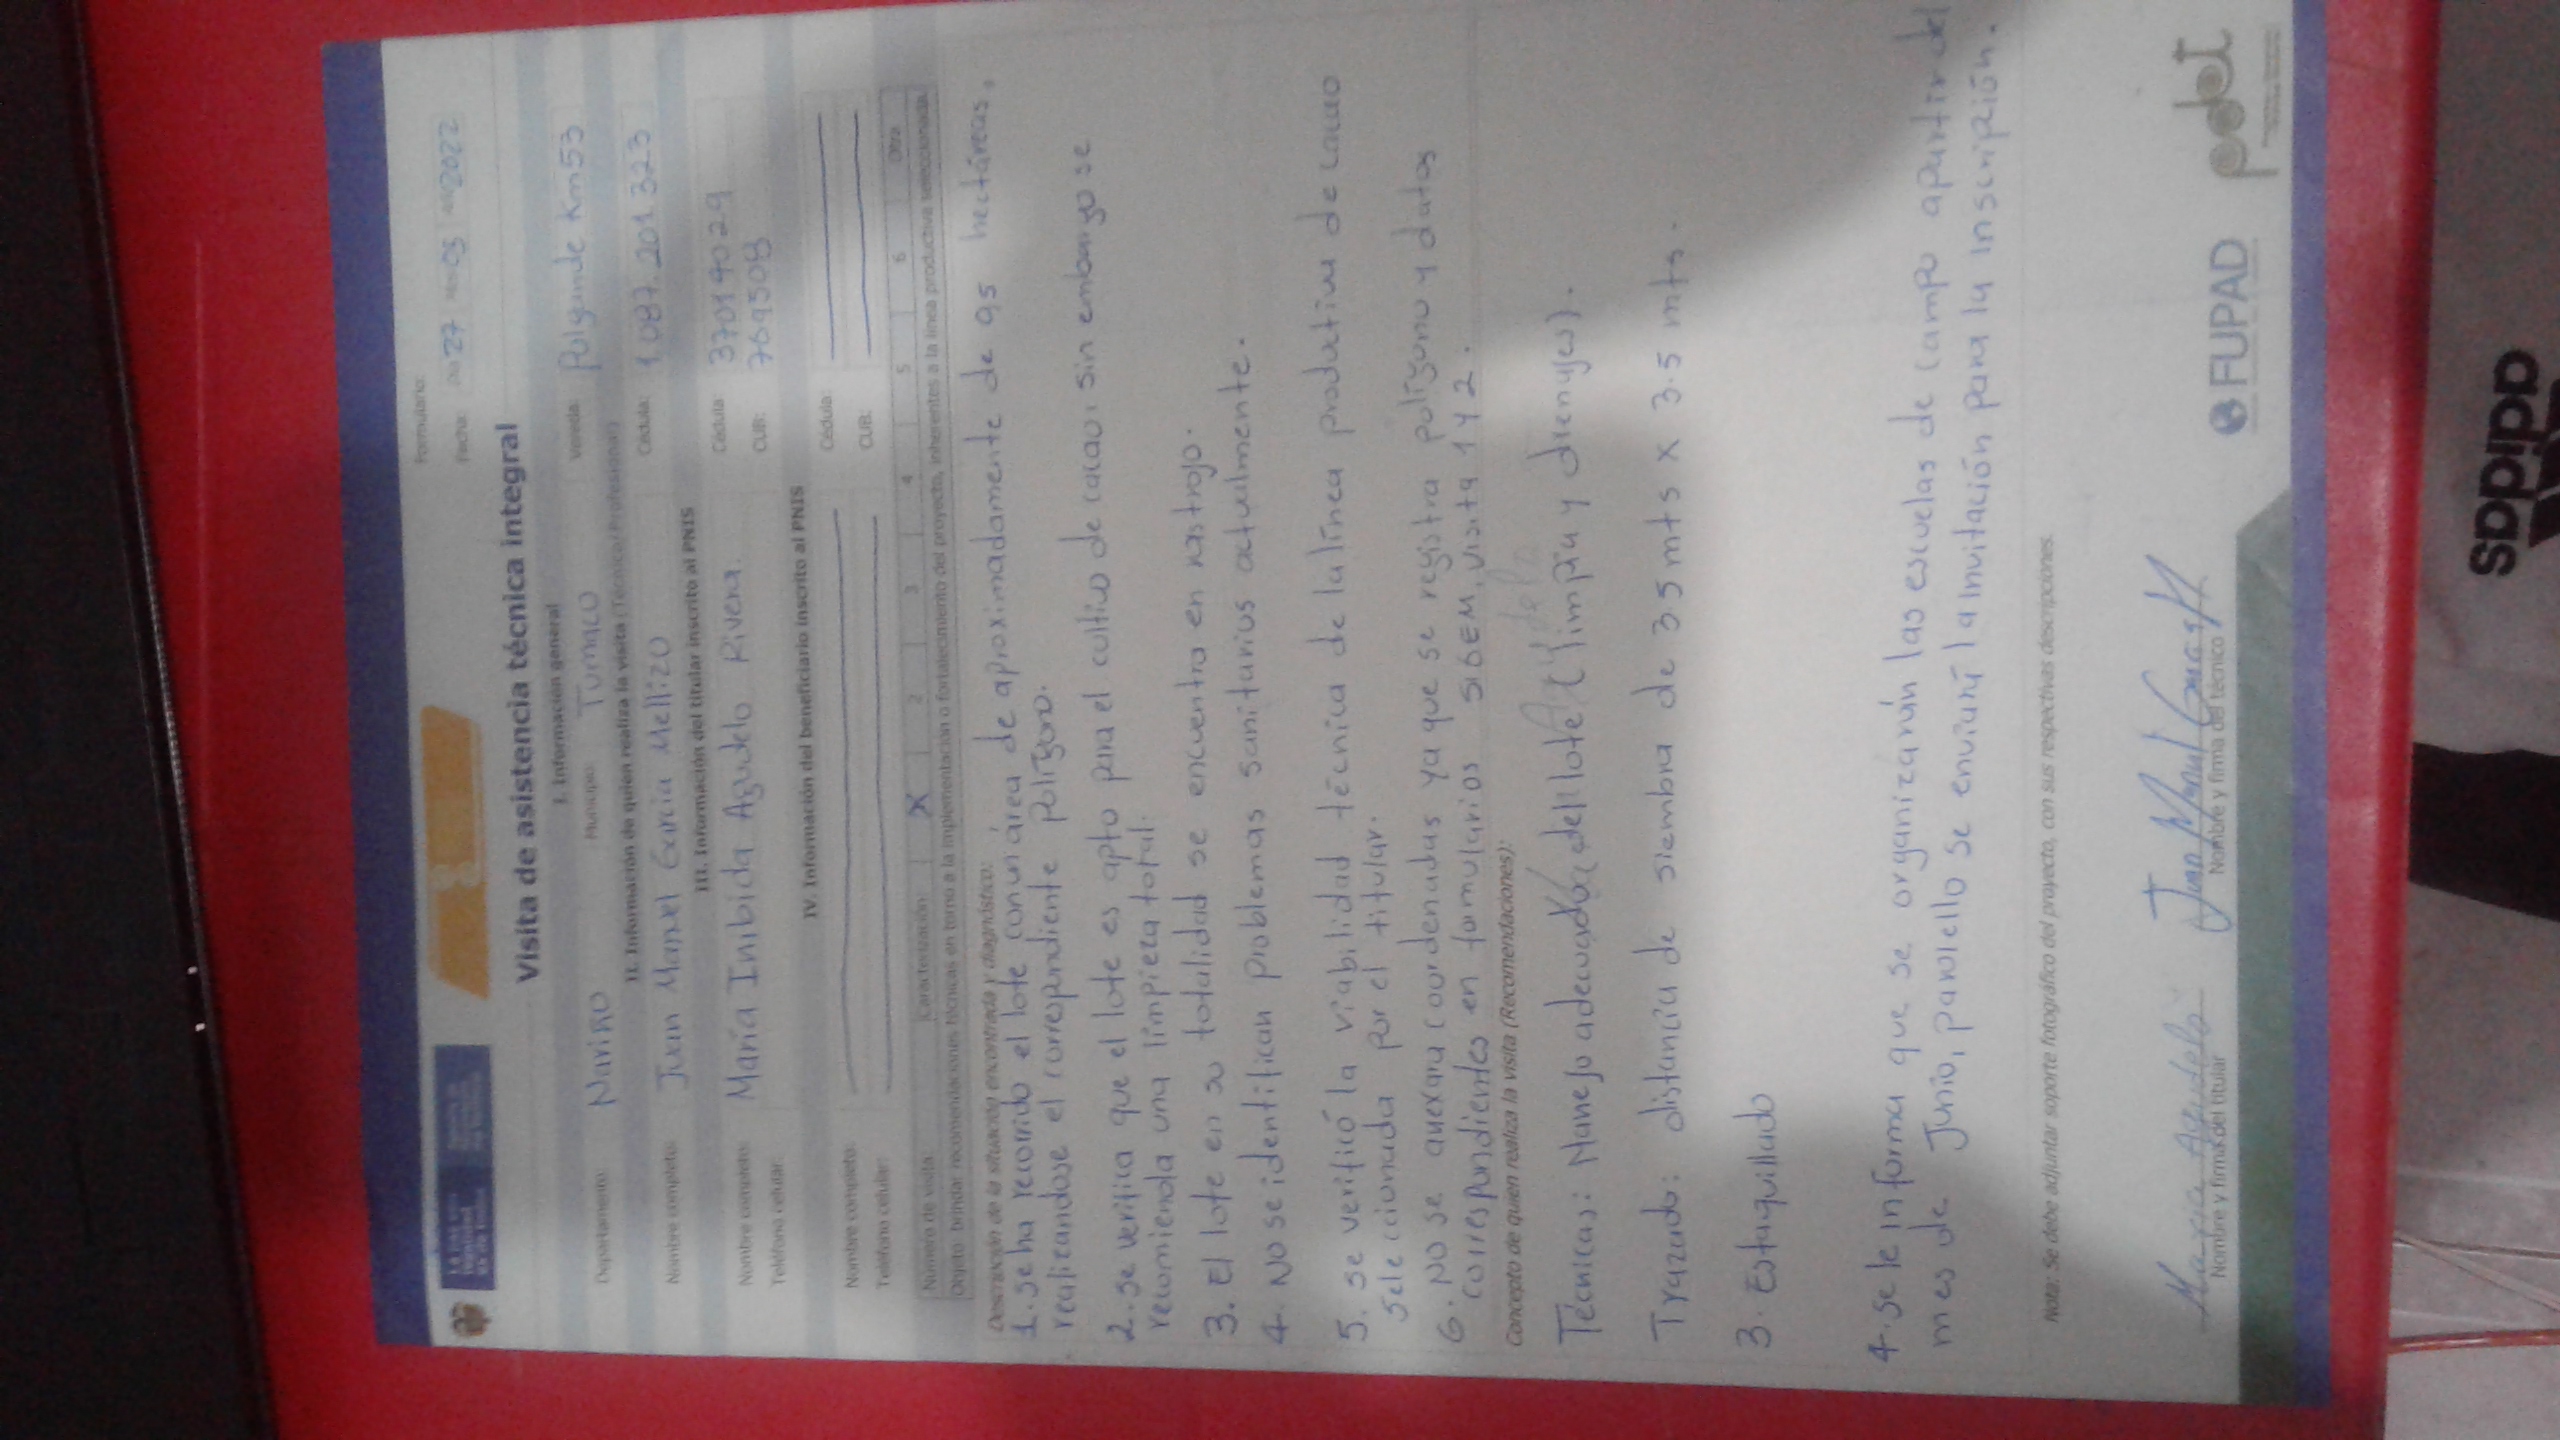 Formulario:
Fecha: Día 27 Mes 05 Año 2022
Visita de asistencia técnica integral
I. Información general
Departamento: Nariño Municipio: Tumaco Vereda: Polgande Km53
II. Información de quien realiza la visita (Técnico/Profesional)
Nombre completo: Juan Manuel García Mellizo Cédula: 1.087.201.323
III. Información del titular inscrito al PNIS
Nombre completo: María Inibida Agudelo Rivera. Cédula: 37019029
Teléfono celular: CUB: 7695508
IV. Información del beneficiario inscrito al PNIS
Nombre completo: Cédula:
Teléfono celular: CUB:
Número de visita: Caracterización: X 2 3 4 5 6 Otra
Objeto: brindar recomendaciones técnicas en torno a la implementación o fortalecimiento del proyecto, inherentes a la línea productiva seleccionada.
Descripción de la situación encontrada y diagnóstico:
1. se ha recorrido el lote con un área de aproximadamente de 95 hectáreas,
realizandose el correspondiente polígono.
2. se verifica que el lote es apto para el cultivo de cacao, sin embargo se
recomienda una limpieza total.
3. El lote en su totalidad se encuentra en rastrojo.
4. No se identifican problemas sanitarios actualmente.
5. se verificó la viabilidad técnica de la línea productiva de cacao
seleccionada por el titular.
6. No se anexara coordenadas ya que se registra polígono y datos
correspondientes en formularios SIGEM, visita 1 y 2.
Concepto de quien realiza la visita (Recomendaciones):
Técnicas: Manejo adecuado del lote (limpia y drenajes).
Trazado: distancia de siembra de 3.5 mts x 3.5 mts.
3. Estaquillado
4. se le informa que se organizarán las escuelas de campo apartir del
mes de Junio, paralelo se enviará la invitación para la inscripción.
Nota: Se debe adjuntar soporte fotográfico del proyecto, con sus respectivas descripciones.
Maria Agudelo
Nombre y firma del titular
Juan Manuel García M
Nombre y firma del técnico
FUPAD
pdet
adidas